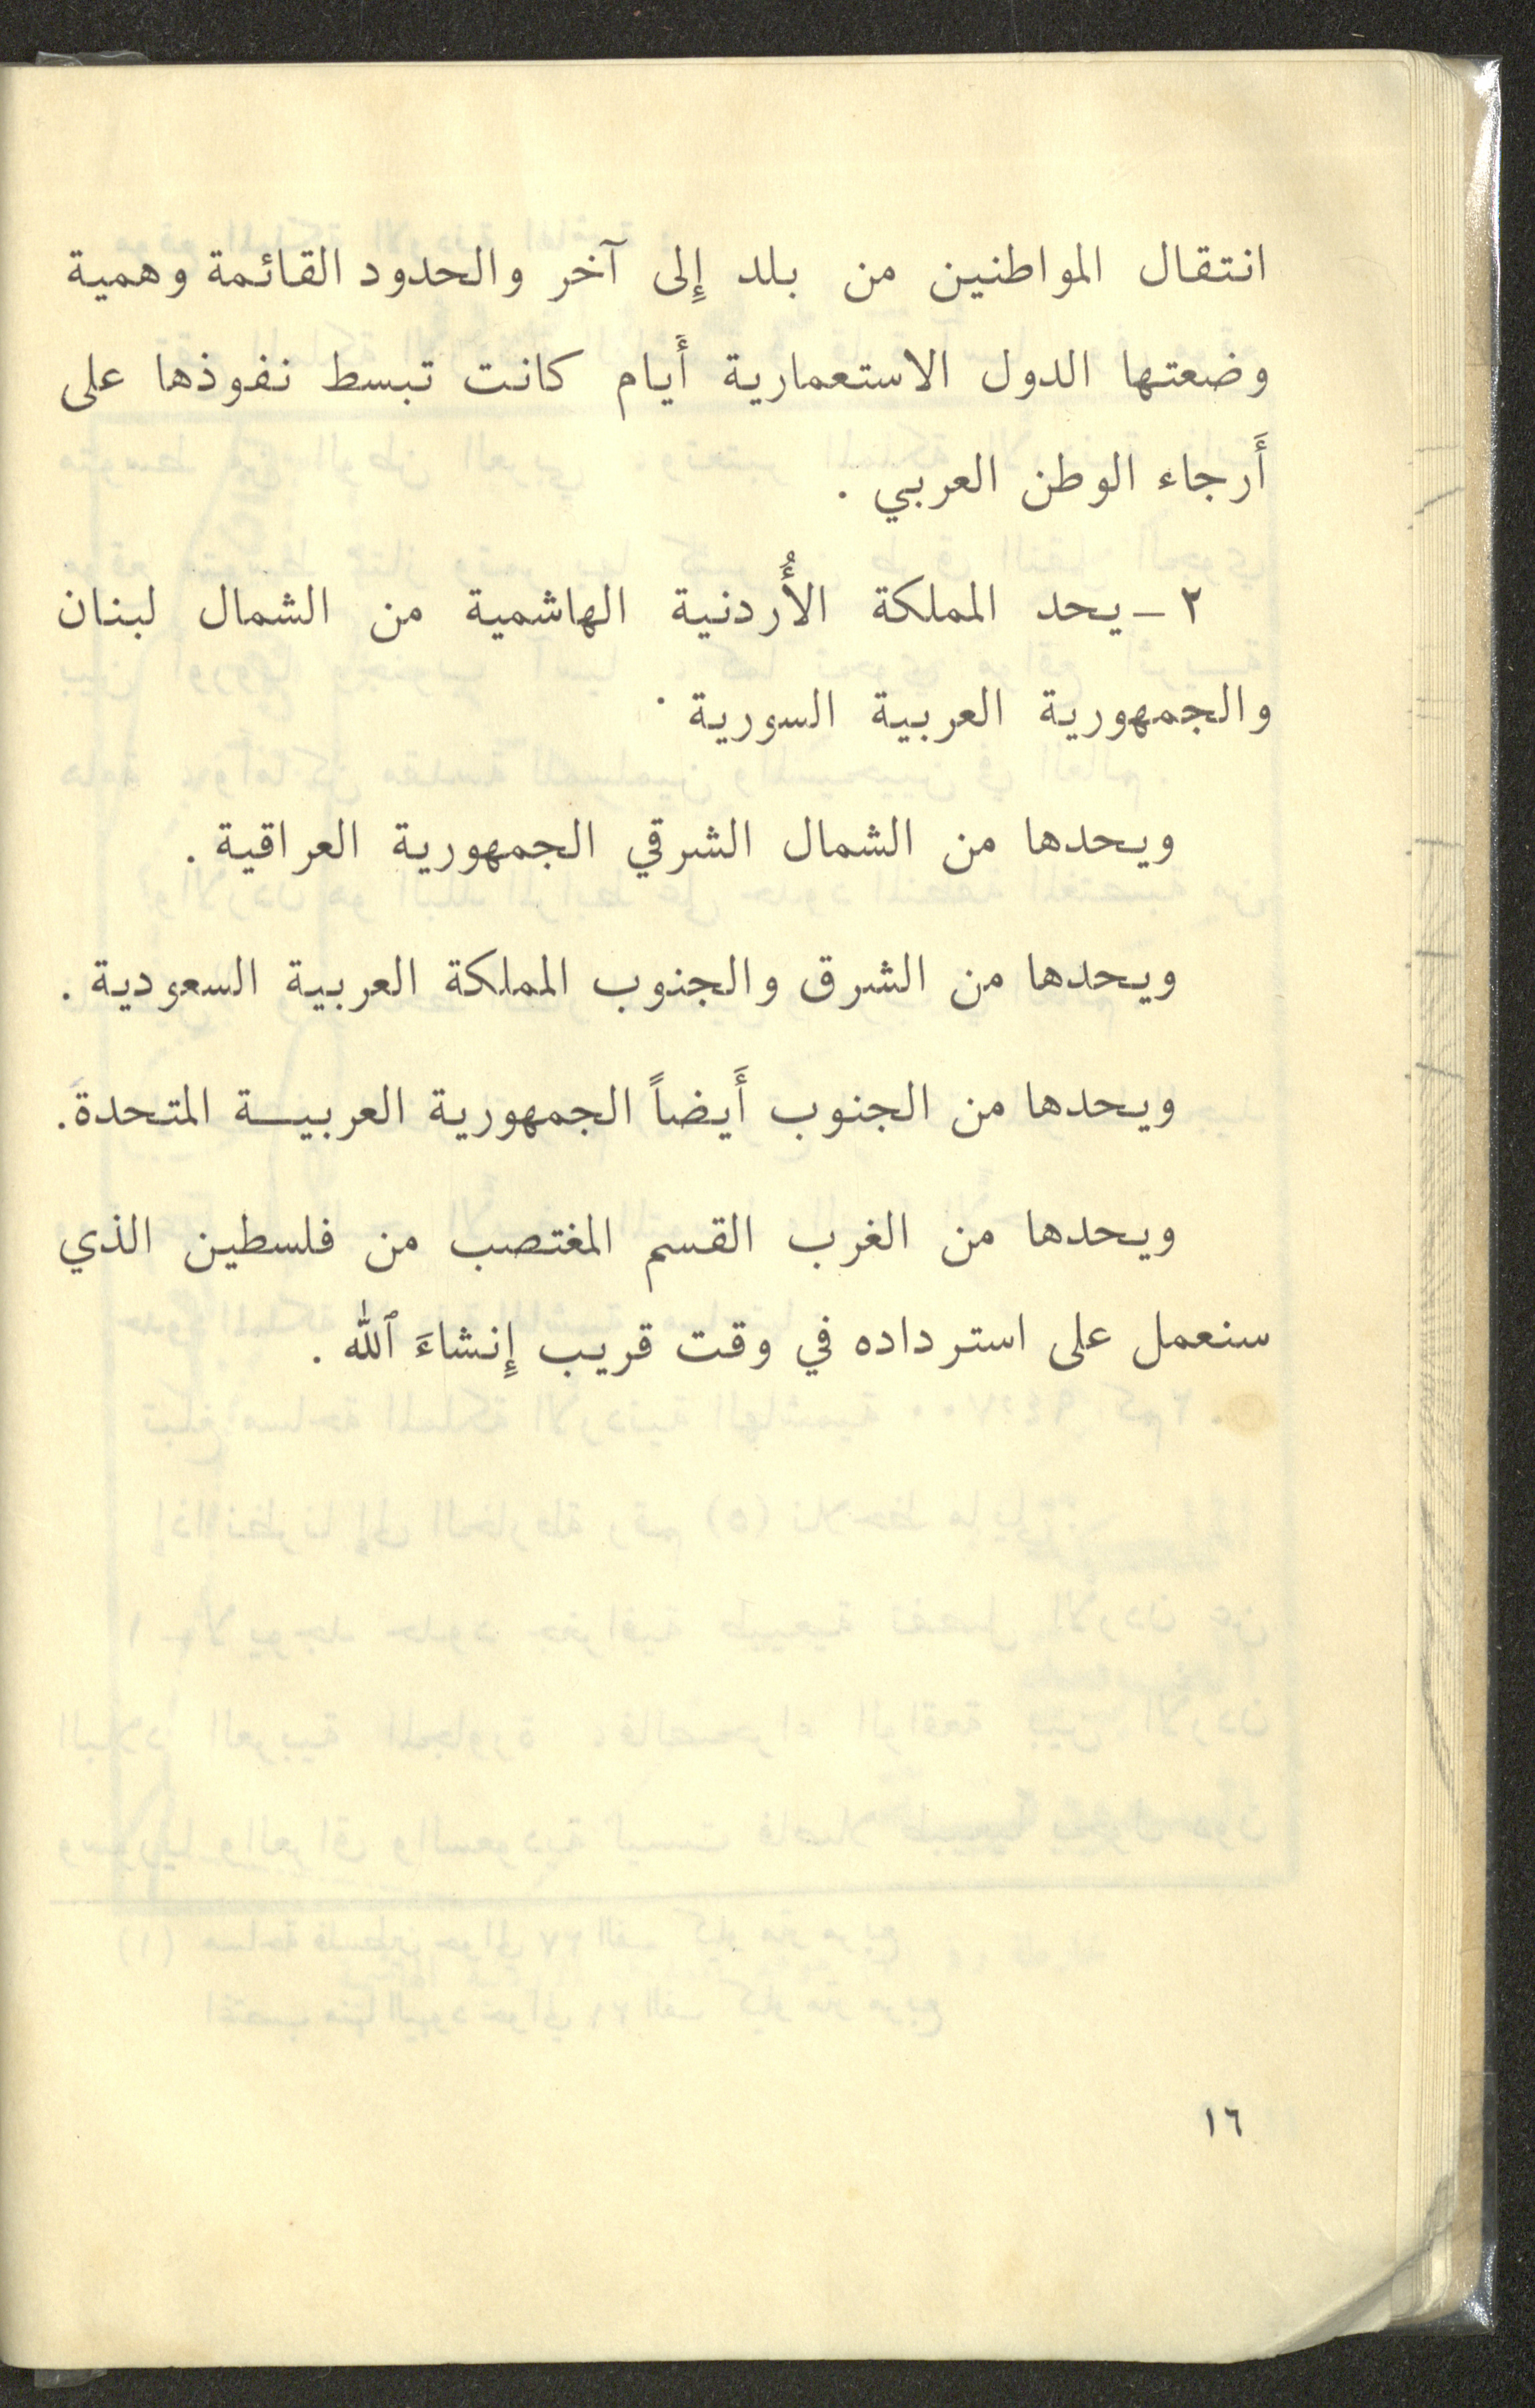 انتقال المواطنين من بلد إِلى آخر والحدود القائمة وهمية
وضعتها الدول الاستعمارية أَيام كانت تبسط نفوذها على
أَرجاء الوطن العربي .
٢ – يحد المملكة الأُردنية الهاشمية من الشمال لبنان
والجمهورية العربية السورية .
ويحدها من الشمال الشرقي الجمهورية العراقية .
ويحدها من الشرق والجنوب المملكة العربية السعودية .
ويحدها من الجنوب أَيضاً الجمهورية العربيـــة المتحدة.
ويحدها من الغرب القسم المغتصب من فلسطين الذي
سنعمل على استرداده في وقت قريب إِنشاءَ ٱلله .
١٦